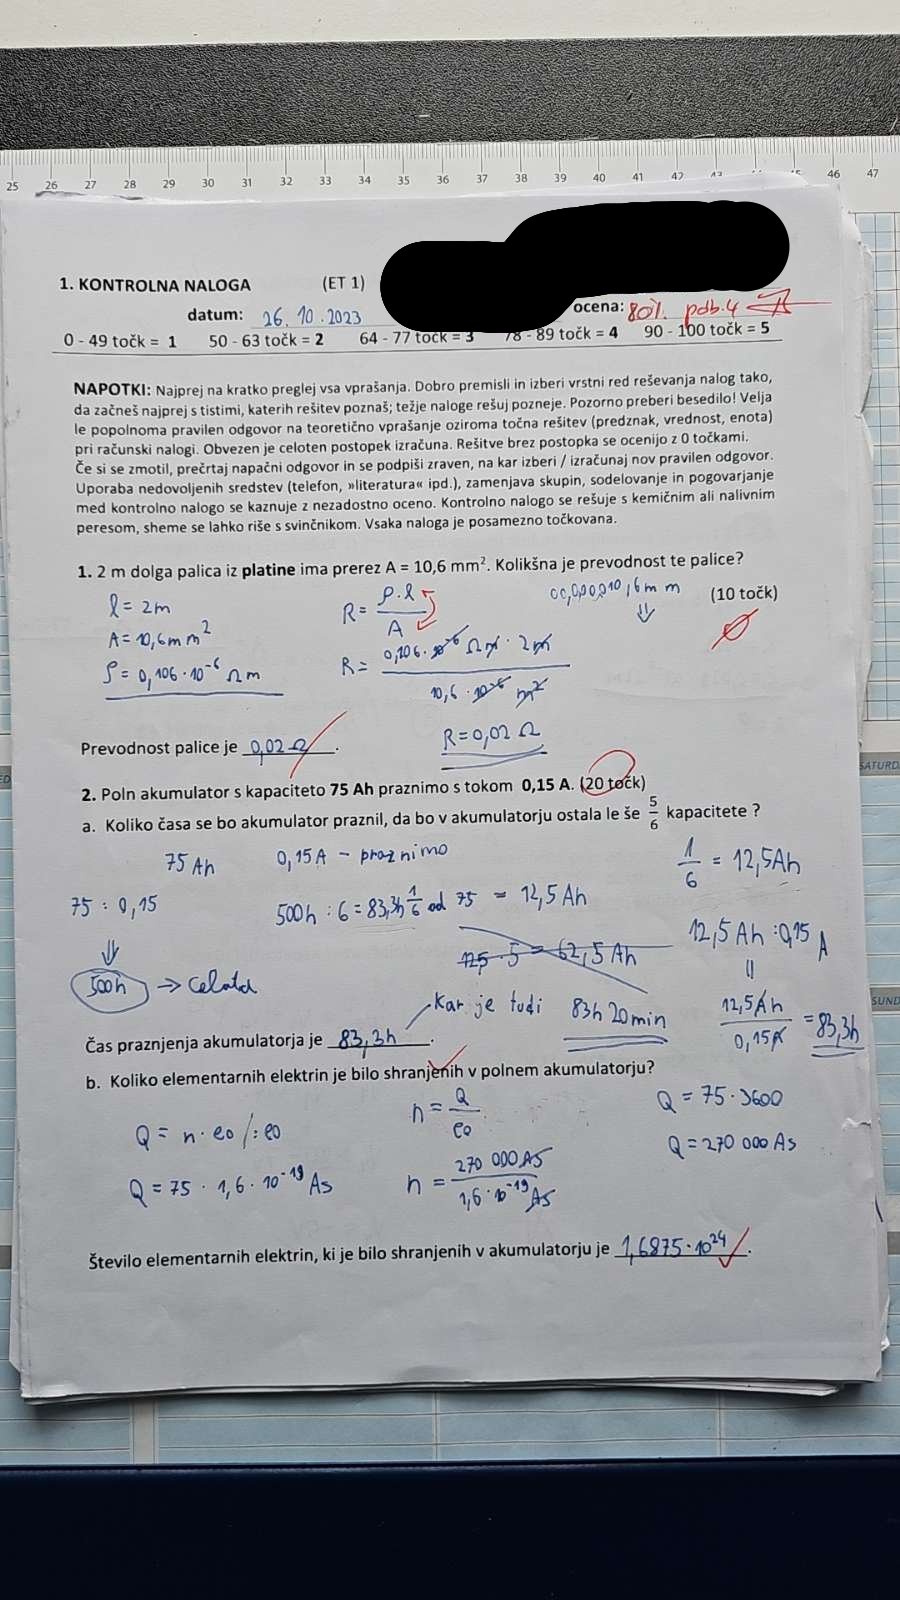 25 26 27 28 29 30 31 32 33 34 35 36 37 38 39 40 41 42 43 46 47
1. KONTROLNA NALOGA (ET 1)
datum: 26. 10. 2023 ocena: 80% pdb. 4
0 - 49 točk = 1 50 - 63 točk = 2 64 - 77 točk = 3 78 - 89 točk = 4 90 - 100 točk = 5
NAPOTKI: Najprej na kratko preglej vsa vprašanja. Dobro premisli in izberi vrstni red reševanja nalog tako,
da začneš najprej s tistimi, katerih rešitev poznaš; težje naloge rešuj pozneje. Pozorno preberi besedilo! Velja
le popolnoma pravilen odgovor na teoretično vprašanje oziroma točna rešitev (predznak, vrednost, enota)
pri računski nalogi. Obvezen je celoten postopek izračuna. Rešitve brez postopka se ocenijo z 0 točkami.
Če si se zmotil, prečrtaj napačni odgovor in se podpiši zraven, na kar izberi / izračunaj nov pravilen odgovor.
Uporaba nedovoljenih sredstev (telefon, »literatura« ipd.), zamenjava skupin, sodelovanje in pogovarjanje
med kontrolno nalogo se kaznuje z nezadostno oceno. Kontrolno nalogo se rešuje s kemičnim ali nalivnim
peresom, sheme se lahko riše s svinčnikom. Vsaka naloga je posamezno točkovana.
1. 2 m dolga palica iz platine ima prerez A = 10,6 mm². Kolikšna je prevodnost te palice?
(10 točk)
l = 2m
A = 10,6 mm²
ρ = 0,106 · 10⁻⁶ Ωm
R = ρ · l / A
R = 0,106 · 10⁻⁶ Ωm · 2m / 10,6 · 10⁻⁶ m²
R = 0,02 Ω
0
Prevodnost palice je 0,02 Ω.
2. Poln akumulator s kapaciteto 75 Ah praznimo s tokom 0,15 A. (20 točk)
a. Koliko časa se bo akumulator praznil, da bo v akumulatorju ostala le še 5/6 kapacitete ?
75 Ah 0,15 A - praznimo 1/6 = 12,5 Ah
75 : 0,15 500h : 6 = 83,3h 1/6 od 75 = 12,5 Ah
12,5 Ah : 0,15 A
12,5 · 5 = 62,5 Ah
500h → celota
kar je tudi 83h 20min
12,5 Ah / 0,15 A = 83,3h
Čas praznjenja akumulatorja je 83,3h.
b. Koliko elementarnih elektrin je bilo shranjenih v polnem akumulatorju?
Q = n · e0 / : e0 n = Q / e0 Q = 75 · 3600
Q = 270 000 As
Q = 75 · 1,6 · 10⁻¹⁹ As n = 270 000 As / 1,6 · 10⁻¹⁹ As
Število elementarnih elektrin, ki je bilo shranjenih v akumulatorju je 1,6875 · 10²⁴.